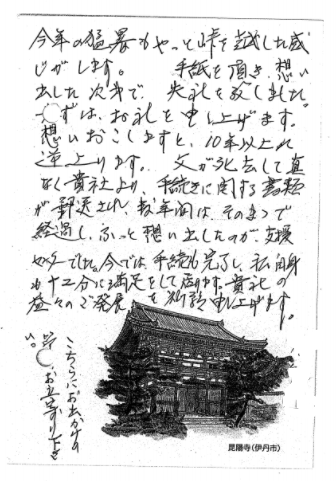 今年の猛暑もやっと峠を越した感
じがします。 手紙を頂き、想い
出した次第で、失礼を致しました。
ずは、お礼を申し上げます。
想いおこしますと、10年以上に
逆上ります。 父が死去して直
なく貴社より、手続きに関する書類
が郵送され、数年間は、そのままで
経過し、ふっと想い出したのが、支援
センターでした。今では、手続も完了し、私自身
も十二分に満足をして居ります。貴社の
益々のご発展を祈願申し上げます。
こちらにお出かけの
お立寄り下さ
い。
昆陽寺(伊丹市)